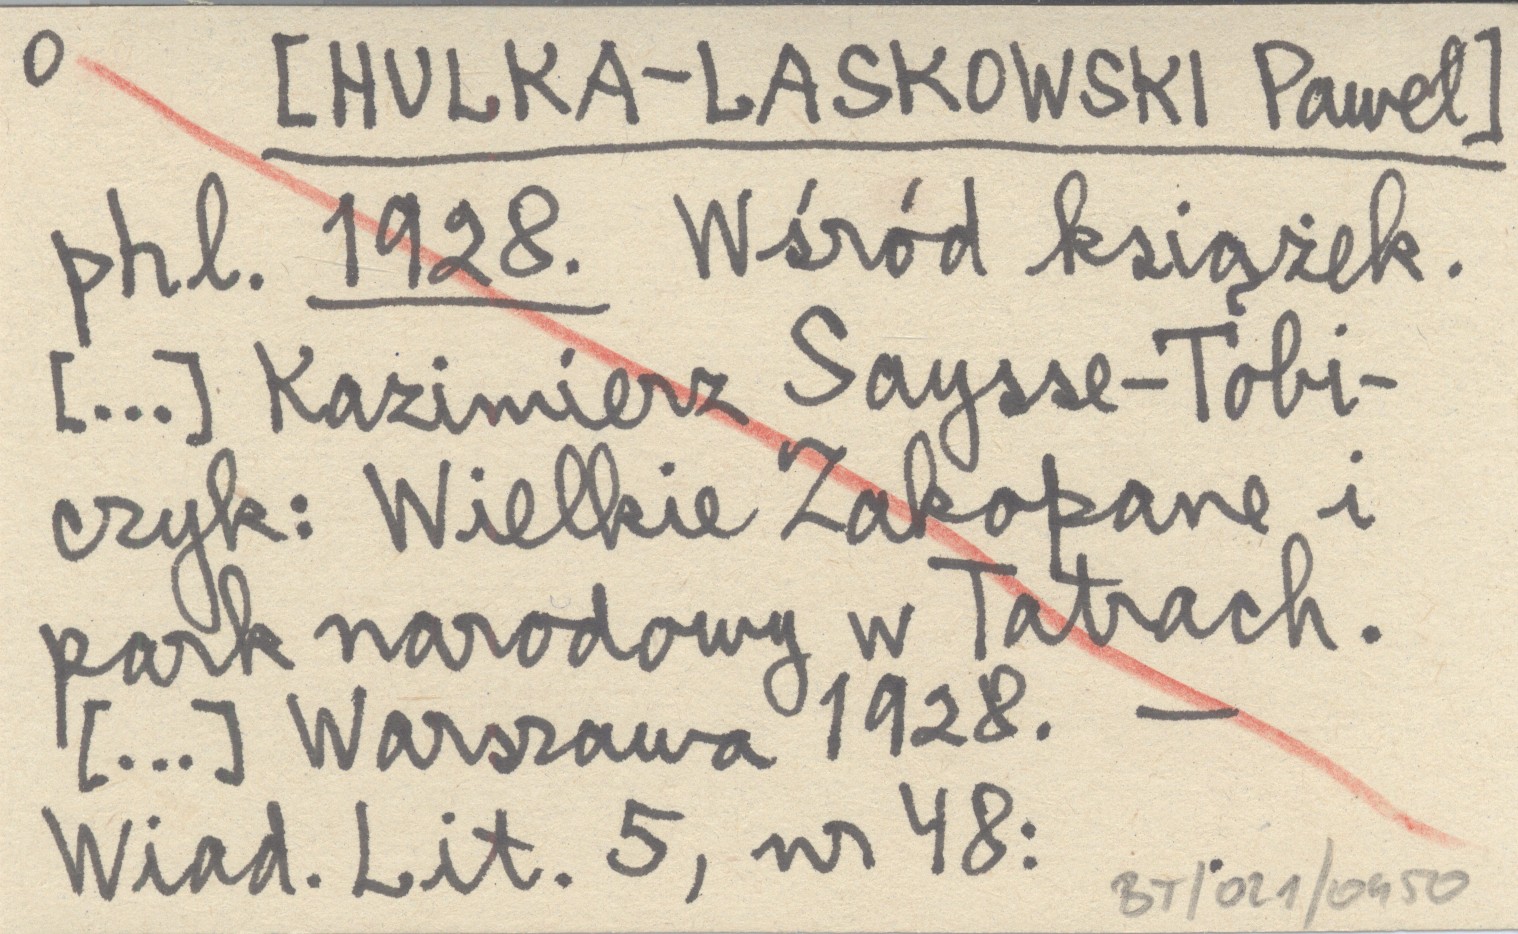 O [HULKA-LASKOWSKI Paweł]
ph.l. 1928. Wśród książek.
[...] Kazimierz Saysse-Tobi-
czyk: Wielkie Zakopane i
park narodowy w Tatrach.
[...] Warszawa 1928. —
Wiad. Lit. 5, nr 48:
BT/021/0450